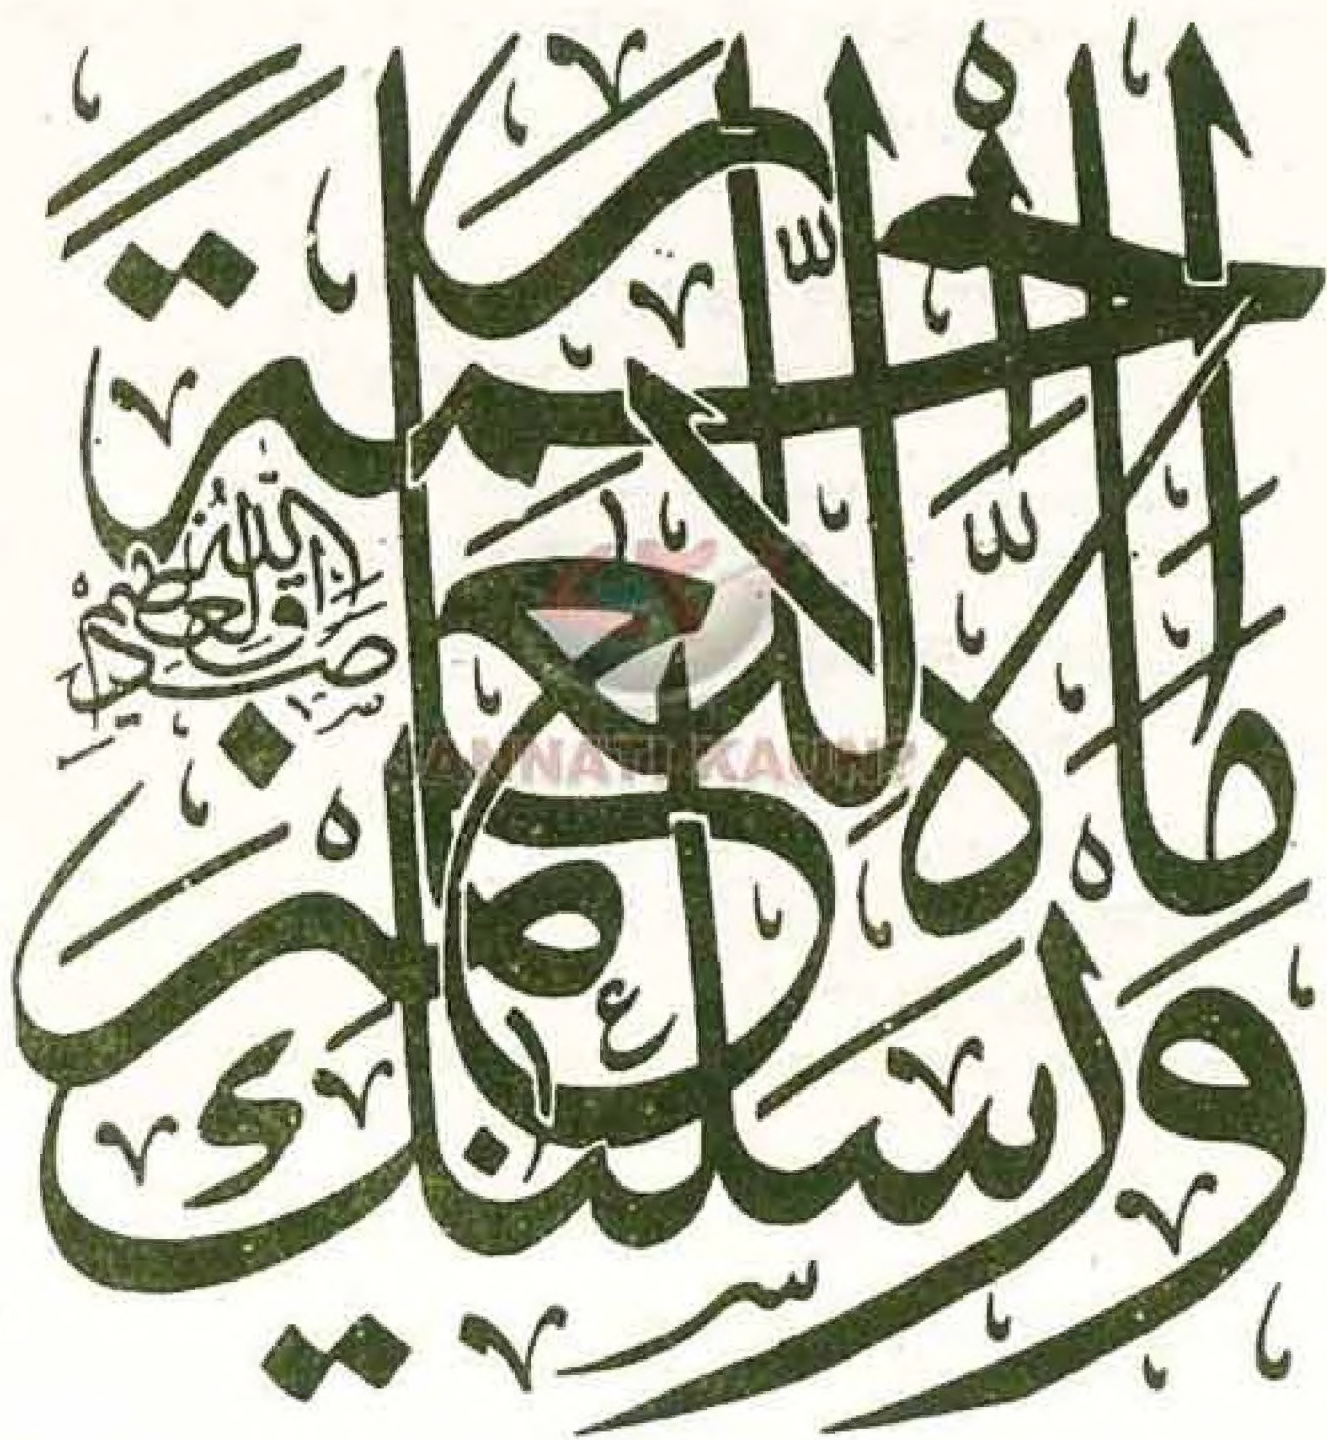 وَمَا أَرْسَلْنَاكَ إِلَّا رَحْمَةً لِلْعَالَمِينَ
صدق الله العظيم
JANNATI KAUN?